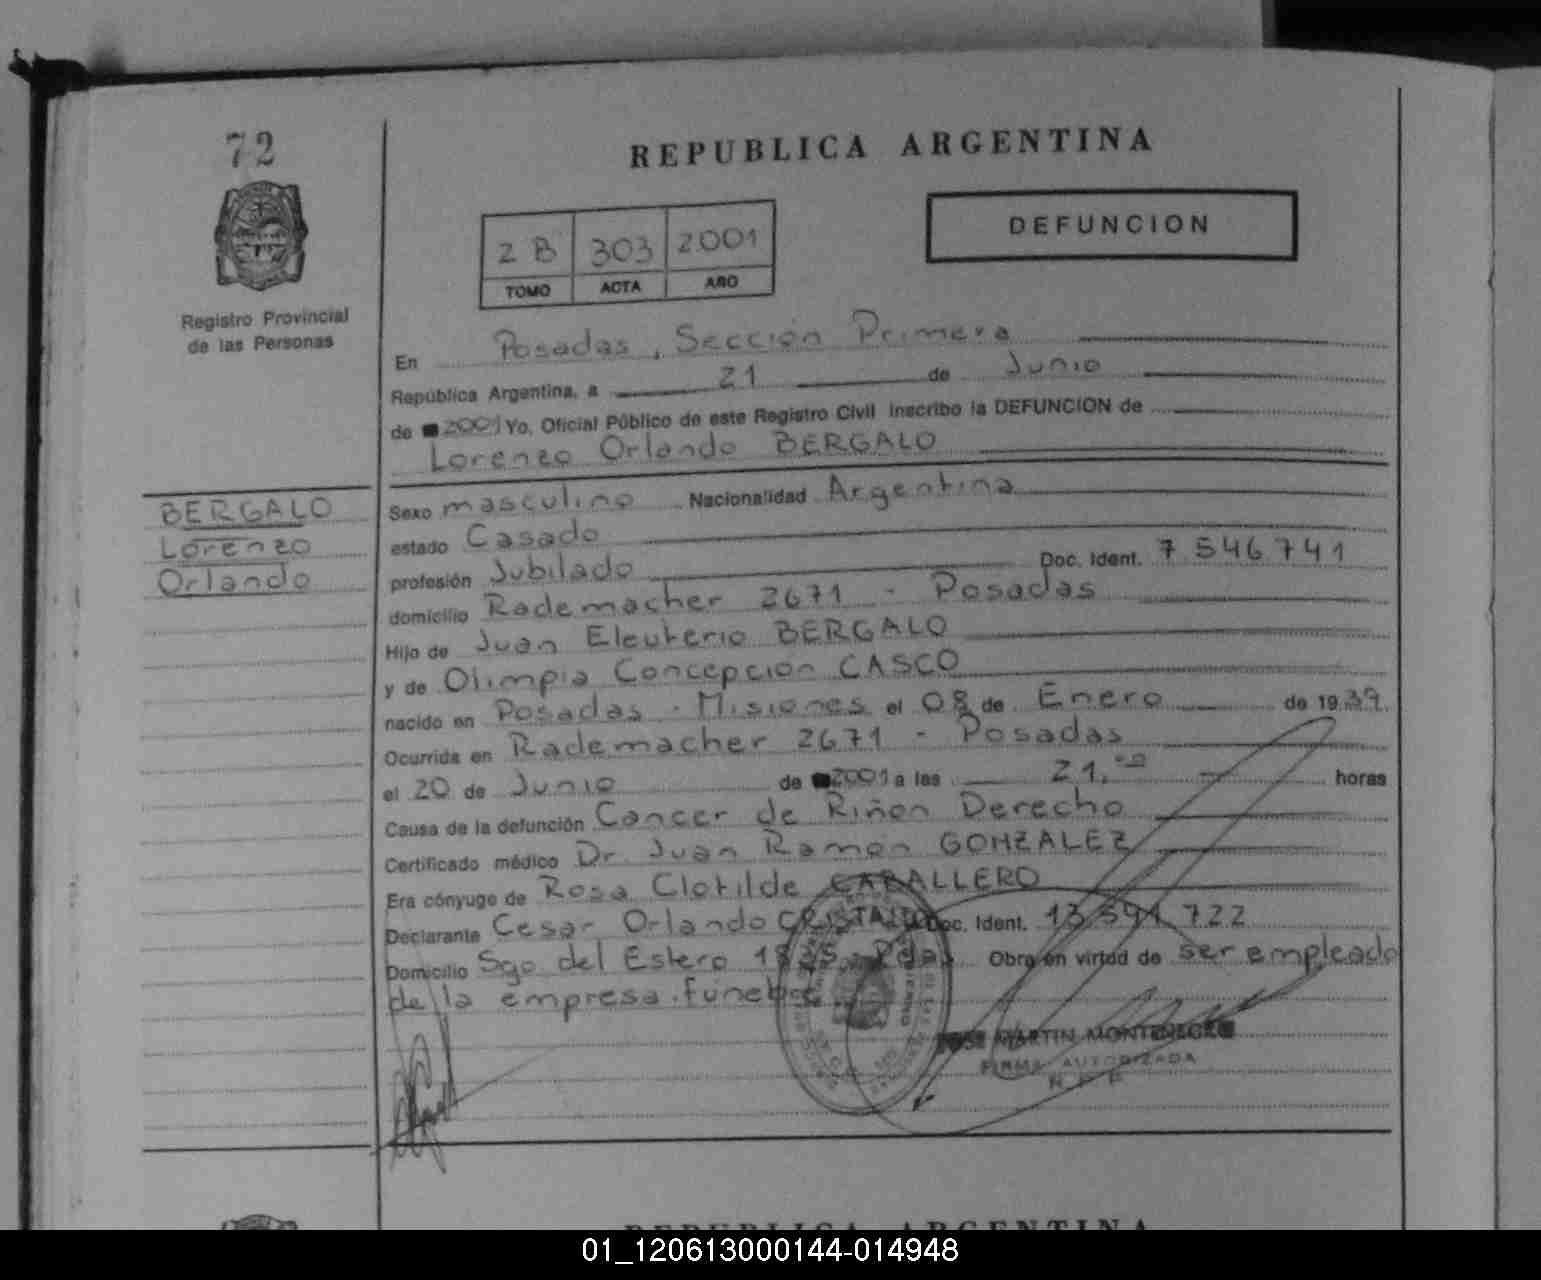 72
REPUBLICA ARGENTINA
2 B 303 2001
TOMO ACTA AÑO
DEFUNCION
Registro Provincial
de las Personas
En Posadas, Sección Primera
República Argentina, a 21 de Junio
de 2001 Yo, Oficial Público de este Registro Civil inscribo la DEFUNCION de
Lorenzo Orlando BERGALO
BERGALO
Lorenzo
Orlando
Sexo masculino Nacionalidad Argentina
estado Casado
profesión Jubilado Doc. Ident. 7 546 741
domicilio Rademacher 2671 - Posadas
Hijo de Juan Eleuterio BERGALO
y de Olimpia Concepción CASCO
nacido en Posadas - Misiones el 08 de Enero de 1939.
Ocurrida en Rademacher 2671 - Posadas
el 20 de Junio de 2001 a las 21,00 horas
Causa de la defunción Cancer de Riñon Derecho
Certificado médico Dr. Juan Ramón GONZALEZ
Era cónyuge de Rosa Clotilde CABALLERO
Declarante Cesar Orlando CRISTALDO Doc. Ident. 13 591 722
Domicilio Sgo del Estero Pdas Obra en virtud de ser empleado
de la empresa funebre
MARTIN MONTENEGRO
FIRMA AUTORIZADA
R P P
REPUBLICA ARGENTINA
01_120613000144-014948